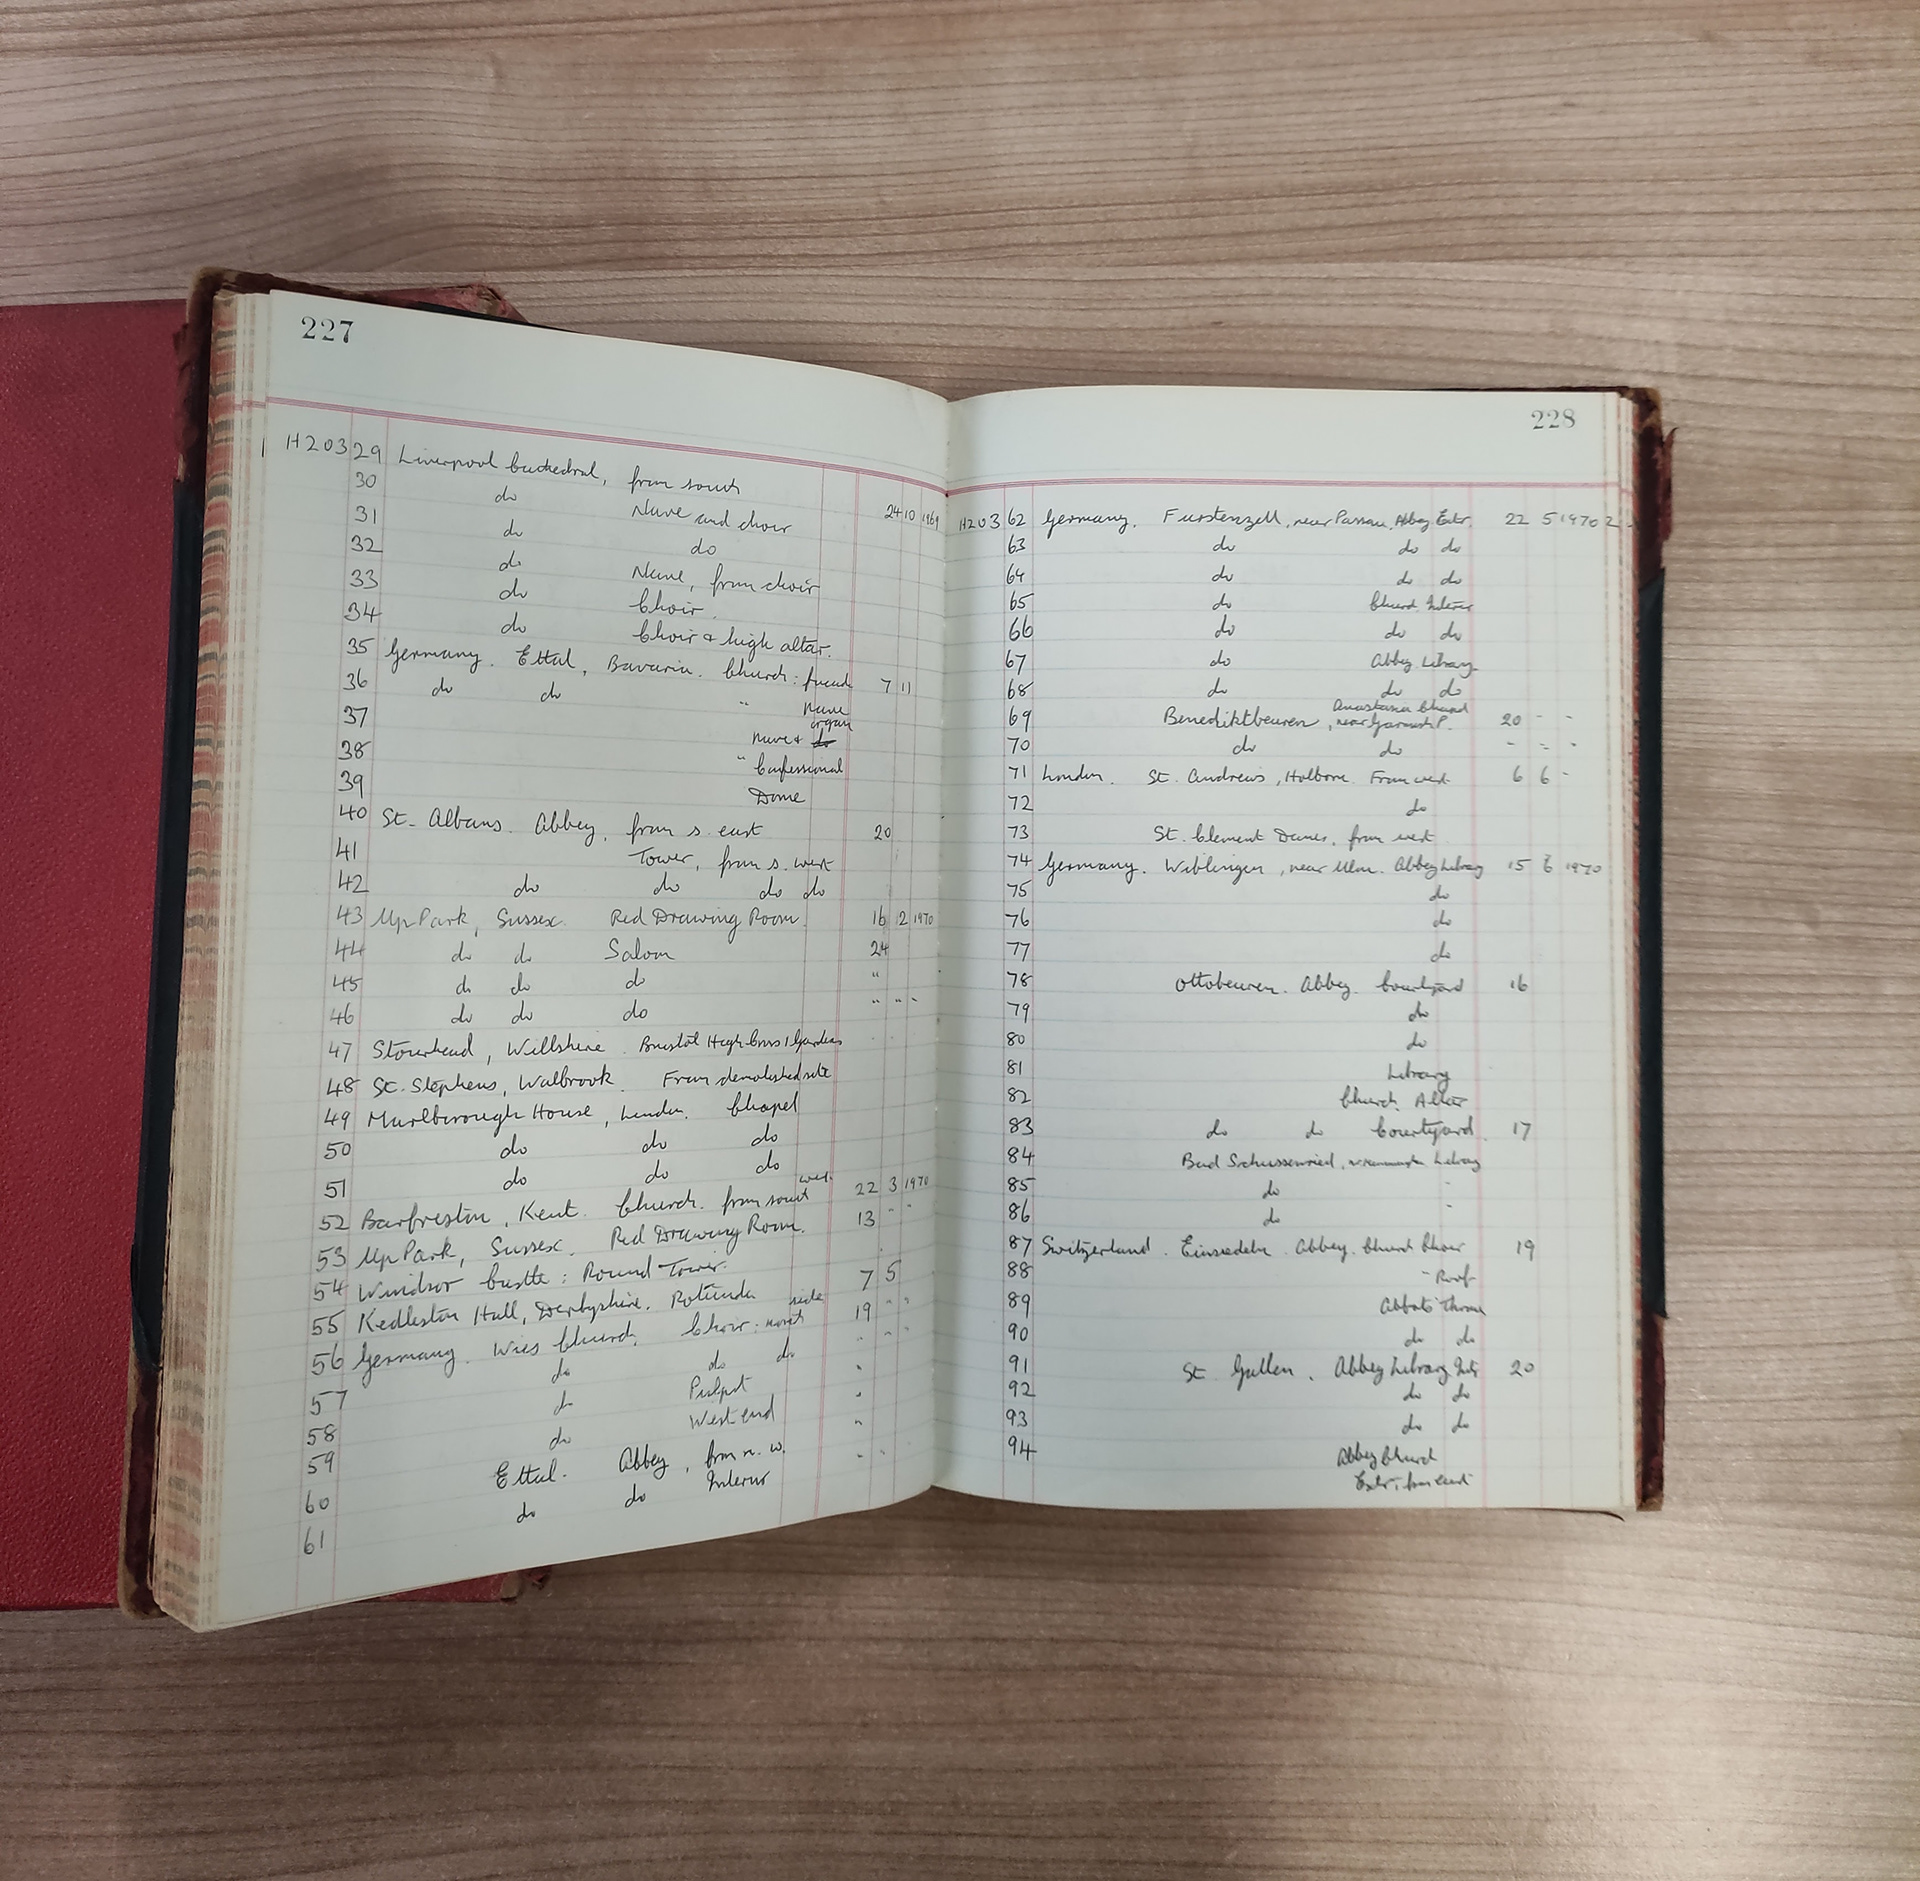 227
H203 29 Liverpool Cathedral, from south
30 do Nave and choir 24 10 1969
31 do do
32 do Nave, from choir
33 do Choir.
34 do Choir & high altar.
35 Germany. Ettal, Bavaria. Church: facade 7 11
36 do do " Nave
37 Nave & do organ
38 " Confessional
39 Dome
40 St. Albans. Abbey, from s. east 20
41 Tower, from s. west
42 do do do do
43 Up Park, Sussex. Red Drawing Room. 16 12 1970
44 do do Saloon 24
45 do do do "
46 do do do " " "
47 Stourhead, Wiltshire. Bristol High Cross & Gardens
48 St. Stephens, Walbrook. From demolished site
49 Marlborough House, London. Chapel
50 do do do
51 do do do
52 Barfreston, Kent. Church. from south west 22 3 1970
53 Up Park, Sussex. Red Drawing Room. 13 " "
54 Windsor Castle: Round Tower.
55 Kedleston Hall, Derbyshire. Rotunda 7 5
56 Germany. Wies Church. Choir: north side 19 " "
57 do do do " " "
58 do Pulpit "
59 do West end "
60 Ettal. Abbey, from n. w. "
61 do do Interior " "
228
H203 62 Germany. Furstenzell, near Passau, Abbey Extr. 22 5 1970 2
63 do do do
64 do do do
65 do Church Interior
66 do do do
67 do Abbey Library
68 do do do
69 Benediktbeuren, near Garmisch P. Anastasia Church 20 - -
70 do do - - -
71 London. St. Andrews, Holborn. From west 6 6 -
72 do
73 St. Clement Danes, from west
74 Germany. Wiblingen, near Ulm. Abbey Library 15 6 1970
75 do
76 do
77 do
78 Ottobeuren. Abbey. Courtyard 16
79 do
80 do
81 Library
82 Church. Altar
83 do do Courtyard. 17
84 Bad Schussenried, Library
85 do "
86 do "
87 Switzerland. Einsiedeln. Abbey. Church Choir 19
88 " Roof
89 Abbots Throne
90 do do
91 St. Gallen. Abbey Library Intr 20
92 do do
93 do do
94 Abbey Church
Extr. from east